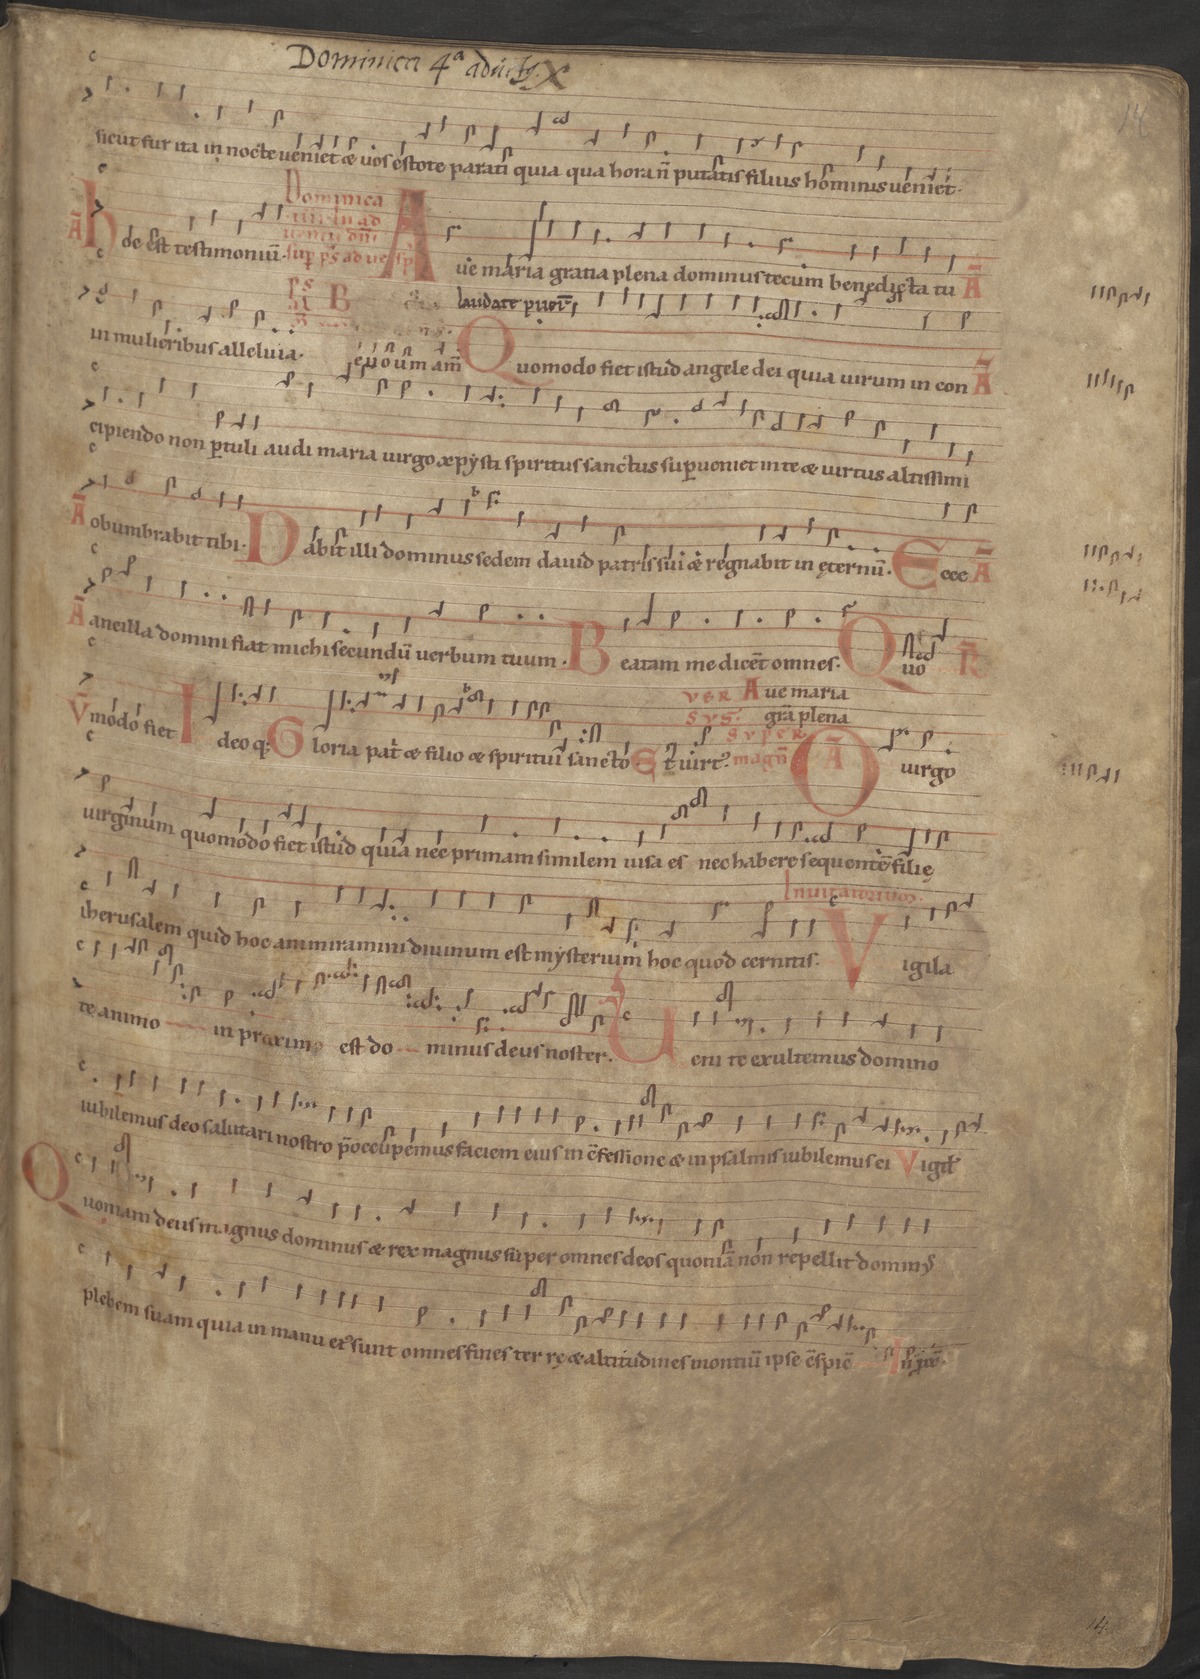 Dominica 4ᵃ aduẽtꝯ X
14
sicut fur ita in nocte ueniet & uos estote parati quia qua hora n̄ putatis filius hominis ueniet·
Ā hI de est testimoniū· Dominica
A ue maria gratia plena dominus tecum benedicta tu Ā
in mulieribus alleluia· euouam am̄ laudate pueri
Q uomodo fiet istud angele dei quia uirum in con Ā
cipiendo non ꝑtuli audi maria uirgo xp̄ysti spiritus sanctus suꝑueniet in te & uirtus altissimi
Ā obumbrabit tibi· D abit illi dominus sedem dauid patris sui & regnabit in ęternū· E cce Ā
Ā ancilla domini fiat michi secundū uerbum tuum· B eatam me dicent omnes· Q uo R̄
V̄ modo fiet I deo q; G loria patri & filio & spiritui sancto E t uirt⁹ VER SVS· A ue maria gr̄a plena SVPER magn̄ O Ā uirgo
uirginum quomodo fiet istud quia nec primam similem uisa es nec habere sequentē filię
Inuitatorium·
iherusalem quid hoc ammiramini diuinum est mysterium hoc quod cernitis· V igila
te animo in proximo est do minus deus noster· U eni te exultemus domino
iubilemus deo salutari nostro p̄occupemus faciem eius in c̄fessione & in psalmis iubilemus ei Vigil̄
Q uoniam deus magnus dominus & rex magnus super omnes deos quoniā non repellit domin⁹
plebem suam quia in manu ei⁹ sunt omnes fines ter rę & altitudines montiū ipse c̄spic̄ In
14.